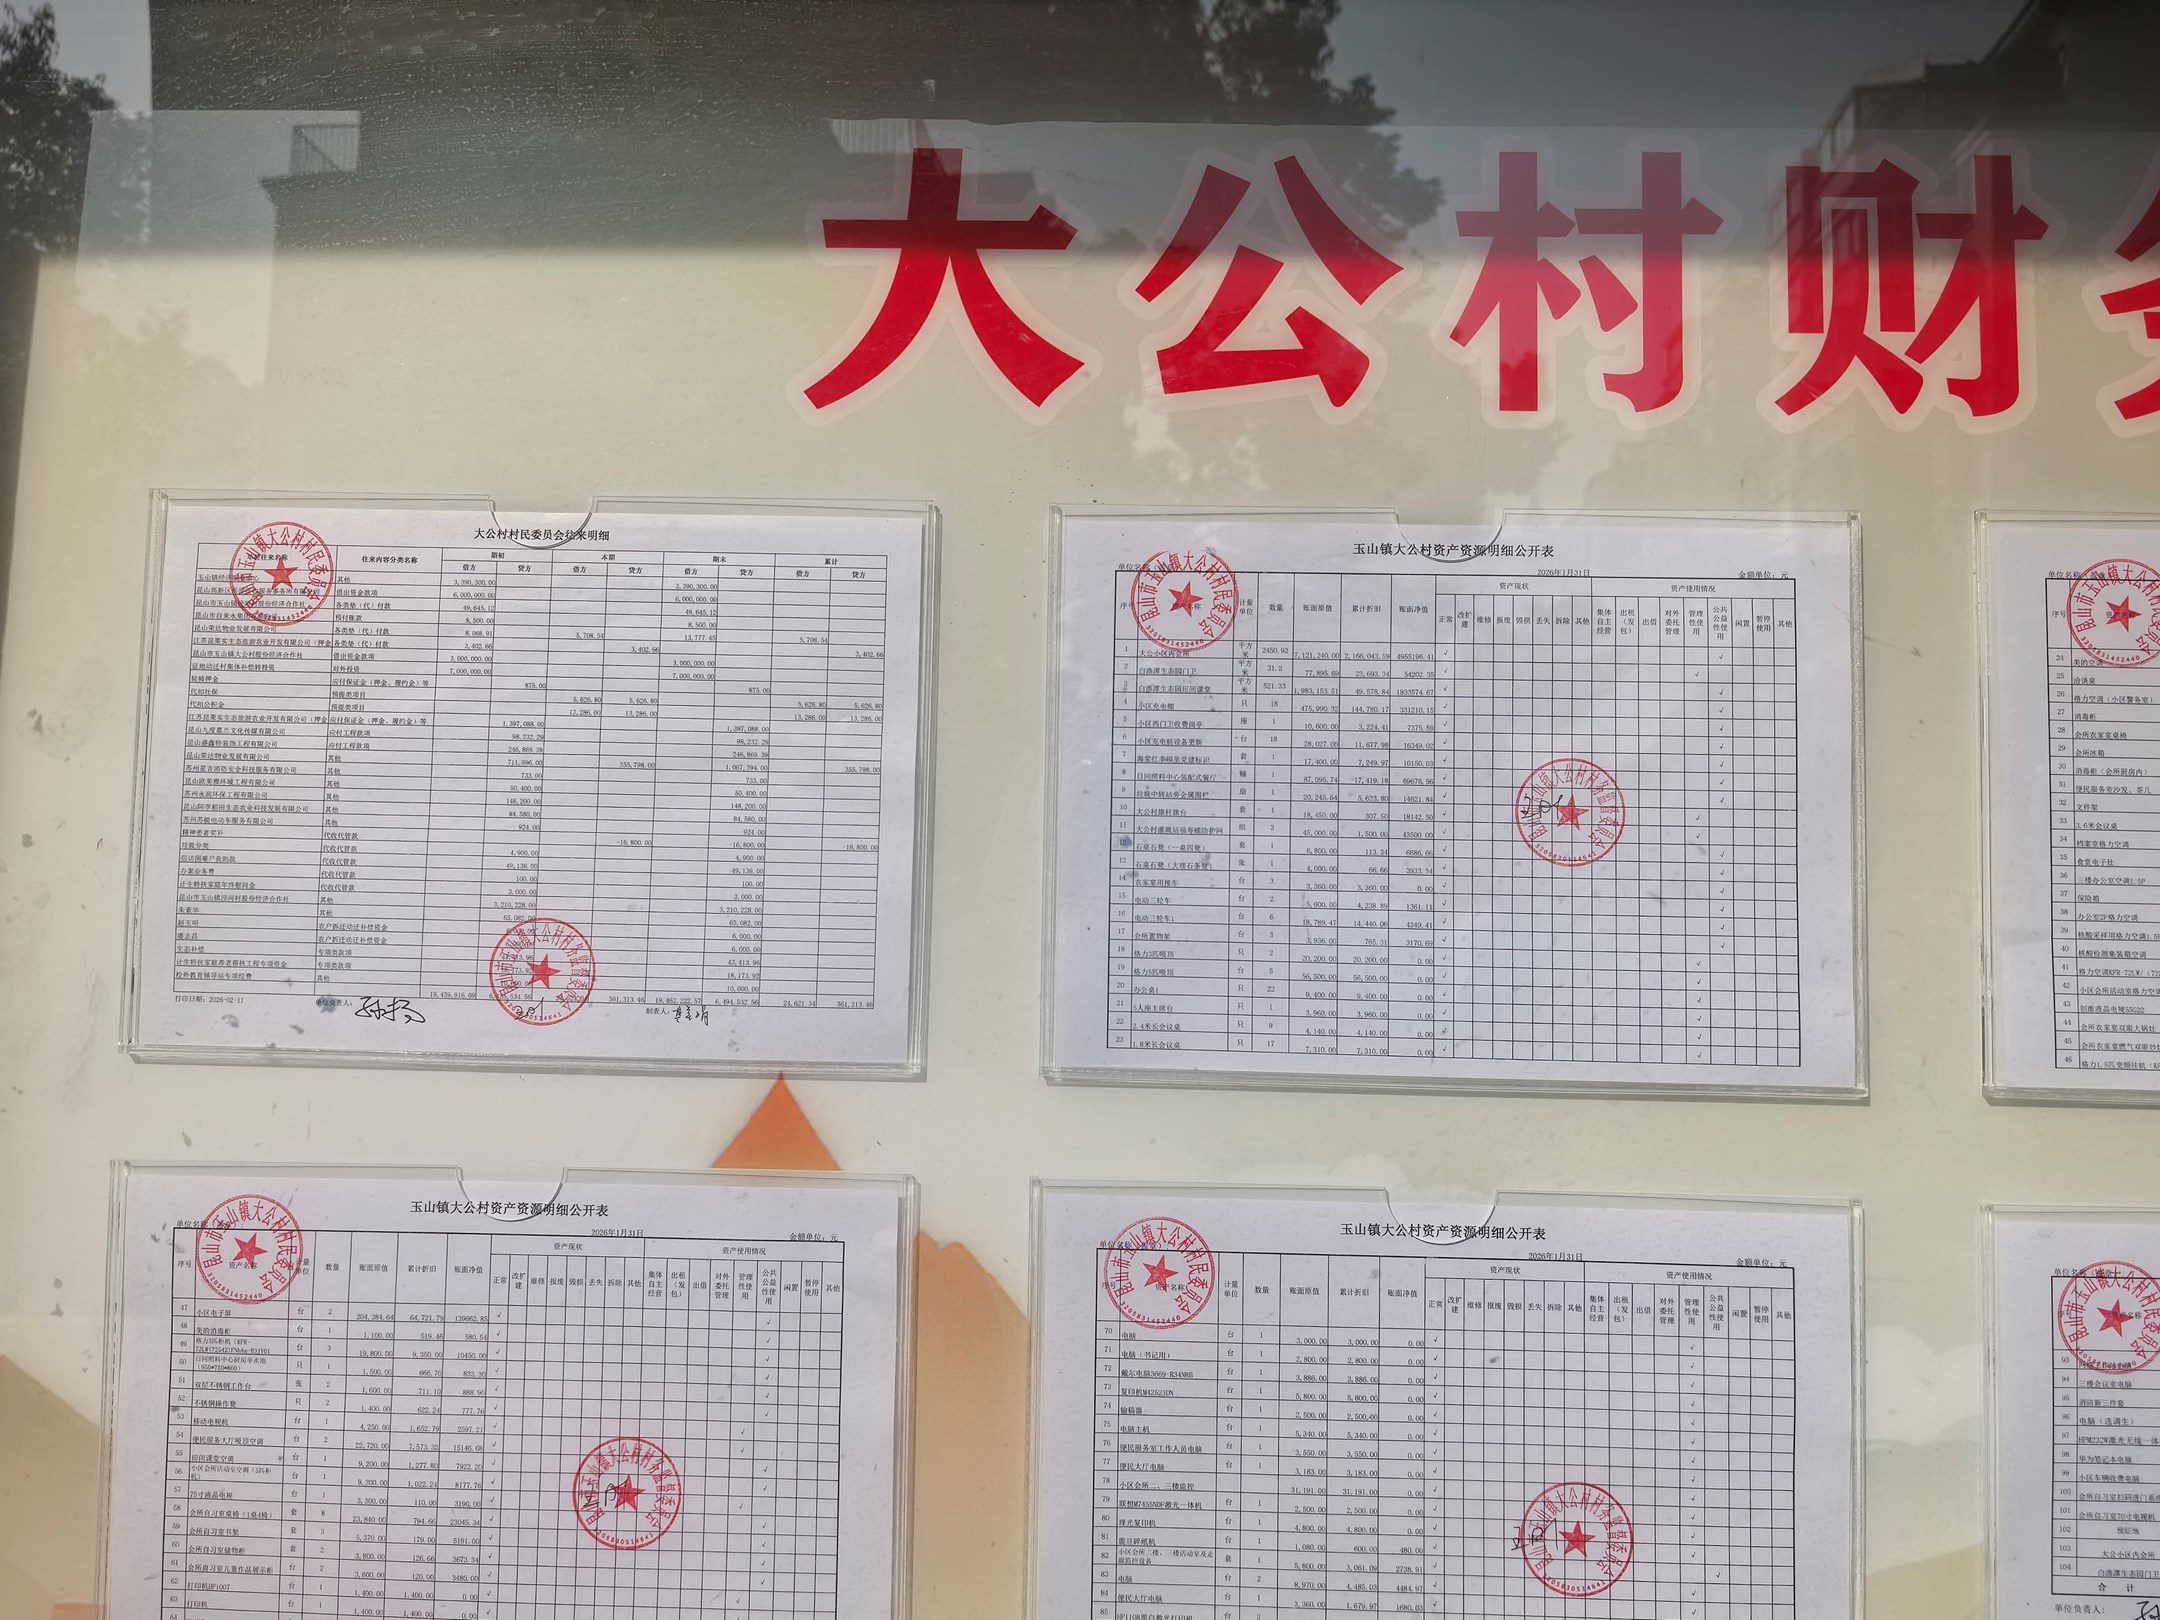 大公村财
大公村村民委员会往来明细
往来内容分类名称 期初 本期 期末 累计
借方 贷方 借方 贷方 借方 贷方 借方 贷方
其他 3,390,300.00 3,390,300.00
借出资金款项 6,000,000.00 6,000,000.00
昆山市玉山镇 股份经济合作社 各类垫（代）付款 49,645.12 49,645.12
预付账款 8,500.00 8,500.00
昆山荣达物业发展有限公司 各类垫（代）付款 8,068.91 5,708.54 13,777.45 5,708.54
江苏昆菓实生态旅游农业开发有限公司（押金 各类垫（代）付款 3,402.66 3,402.66 3,402.66
昆山市玉山镇大公村股份经济合作社 借出资金款项 3,000,000.00 3,000,000.00
征地动迁村集体补偿转投资 对外投资 7,000,000.00 7,000,000.00
轮椅押金 应付保证金（押金、履约金）等 875.00 875.00
代扣社保 预提类项目 5,626.80 5,626.80 5,626.80 5,626.80
代扣公积金 预提类项目 13,286.00 13,286.00 13,286.00 13,286.00
江苏昆菓实生态旅游农业开发有限公司（押金 应付保证金（押金、履约金）等 1,397,088.00 1,397,088.00
昆山九度嘉兰文化传媒有限公司 应付工程款项 98,232.29 98,232.29
昆山盛鑫特装饰工程有限公司 应付工程款项 246,869.39 246,869.39
昆山荣达物业发展有限公司 其他 711,596.00 355,798.00 1,067,394.00 355,798.00
苏州星吉消防安全科技服务有限公司 其他 733.00 733.00
昆山欧美雅环境工程有限公司 其他 50,400.00 50,400.00
苏州永润环保工程有限公司 其他 148,200.00 148,200.00
昆山阿李稻田生态农业科技发展有限公司 其他 84,580.00 84,580.00
苏州苏能电动车服务有限公司 其他 924.00 924.00
精神患者奖补 代收代管款 -16,800.00 -16,800.00 -16,800.00
垃圾分类 代收代管款 4,900.00 4,900.00
信访困难户救助款 代收代管款 49,139.00 49,139.00
办案业务费 代收代管款 100.00 100.00
计生特扶家庭年终慰问金 代收代管款 3,000.00 3,000.00
昆山市玉山镇泾河村股份经济合作社 其他 3,210,228.00 3,210,228.00
朱素华 其他 65,082.00 65,082.00
赵玉明 农户拆迁动迁补偿资金 6,000.00
潘志昌 农户拆迁动迁补偿资金 6,000.00
生态补偿 专项类款项 43,413.96
计生特扶家庭养老帮扶工程专项资金 专项类款项 18,173.92
校外教育辅导站专项经费 其他 10,000.00
19,459,916.69 361,313.46 19,462,222.57 6,494,532.56 24,621.34 361,313.46
打印日期：2026-02-11 单位负责人： 制表人：
玉山镇大公村资产资源明细公开表
2026年1月31日 金额单位：元
序号 资产名称 计量单位 数量 账面原值 累计折旧 账面净值 资产现状 资产使用情况
正常 改扩建 维修 报废 毁损 丢失 拆除 其他 集体自主经营 出租（发包） 出借 对外委托管理 管理性使用 公共公益性使用 闲置 暂停使用 其他
1 大公小区内会所 平方米 2450.92 7,121,240.00 2,166,043.59 4955196.41 √ √
2 白渔潭生态园门卫 平方米 31.2 77,895.69 23,693.34 54202.35 √ √
3 白渔潭生态园田间课堂 平方米 521.33 1,983,153.51 49,578.84 1933574.67 √ √
4 小区充电棚 只 18 475,990.32 144,780.17 331210.15 √ √
5 小区西门卫收费岗亭 座 1 10,600.00 3,224.41 7375.59 √ √
6 小区充电桩设备更新 台 18 28,027.00 11,677.98 16349.02 √ √
7 海棠红幸福里党建标识 套 1 17,400.00 7,249.97 10150.03 √ √
8 日间照料中心装配式餐厅 1 87,095.74 17,419.18 69676.56 √ √
9 垃圾中转站旁金属围栏 扇 1 20,245.64 5,623.80 14621.84 √ √
10 大公村旗杆旗台 套 1 18,450.00 307.50 18142.50 √ √
11 组 3 45,000.00 1,500.00 43500.00 √ √
12 石桌石凳（一桌四凳） 套 1 6,800.00 113.34 6686.66 √ √
13 石桌石凳（大理石条凳） 张 1 4,000.00 66.66 3933.34 √ √
14 农家宴用推车 台 3 3,360.00 3,360.00 0.00 √ √
15 电动三轮车 台 2 5,600.00 4,238.89 1361.11 √ √
16 电动三轮车1 台 6 18,789.47 14,440.06 4349.41 √ √
17 会所置物架 台 3 3,936.00 765.31 3170.69 √ √
18 格力3匹吸顶 只 2 20,200.00 20,200.00 0.00 √ √
19 格力5匹吸顶 台 5 56,500.00 56,500.00 0.00 √ √
20 办公桌1 只 22 9,400.00 9,400.00 0.00 √ √
21 5人座主席台 只 1 3,960.00 3,960.00 0.00 √ √
22 2.4米长会议桌 只 9 4,140.00 4,140.00 0.00 √ √
23 1.8米长会议桌 只 17 7,310.00 7,310.00 0.00 √ √
序号
24 美的空调
25 洽谈桌
26 格力空调（小区警务室）
27 消毒柜
28 会所农家宴桌椅
29 会所冰箱
30 消毒柜（会所厨房内）
31 便民服务室沙发、茶几
32 文件架
33 3.6米会议桌
34 档案室格力空调
35 食堂电子灶
36 三楼办公室空调1.5P
37 保险箱
38 办公室2P格力空调
39 核酸采样用格力空调1.5
40 核酸检测集装箱空调
41 格力空调KFR-72LW/（72
42 小区会所活动室格力空调
43 创维液晶电视55G22
44 会所农家宴双眼大锅灶
45 会所农家宴燃气双眼炒
46 格力1.5匹变频挂机（KF
玉山镇大公村资产资源明细公开表
2026年1月31日 金额单位：元
序号 资产名称 计量单位 数量 账面原值 累计折旧 账面净值 资产现状 资产使用情况
正常 改扩建 维修 报废 毁损 丢失 拆除 其他 集体自主经营 出租（发包） 出借 对外委托管理 管理性使用 公共公益性使用 闲置 暂停使用 其他
47 小区电子屏 台 2 204,384.64 64,721.79 139662.85 √ √
48 美的消毒柜 台 1 1,100.00 519.46 580.54 √ √
49 格力3匹柜机 台 3 19,800.00 9,350.00 10450.00 √ √
50 日间照料中心厨房单水池（950*750*800） 只 1 1,500.00 666.70 833.30 √ √
51 双层不锈钢工作台 张 2 1,600.00 711.10 888.90 √ √
52 不锈钢操作凳 只 2 1,400.00 622.24 777.76 √ √
53 移动电视机 台 1 4,250.00 1,652.79 2597.21 √ √
54 便民服务大厅吸顶空调 台 2 22,720.00 7,573.32 15146.68 √ √
55 田间课堂空调 台 1 9,200.00 1,277.80 7922.20 √ √
56 小区会所活动室空调（3匹柜机） 台 1 9,200.00 1,022.24 8177.76 √ √
57 75寸液晶电视 台 1 3,300.00 110.00 3190.00 √ √
58 会所自习室桌椅（1桌4椅） 套 8 23,840.00 794.66 23045.34 √ √
59 会所自习室书架 套 3 5,370.00 179.00 5191.00 √ √
60 会所自习室储物柜 套 2 3,800.00 126.66 3673.34 √ √
61 会所自习室儿童作品展示柜 台 2 3,600.00 120.00 3480.00 √ √
62 打印机HP1007 台 1 1,400.00 1,400.00 0.00 √ √
63 打印机 台 1 1,400.00 1,400.00 0.00 √
64
玉山镇大公村资产资源明细公开表
2026年1月31日 金额单位：元
序号 资产名称 计量单位 数量 账面原值 累计折旧 账面净值 资产现状 资产使用情况
正常 改扩建 维修 报废 毁损 丢失 拆除 其他 集体自主经营 出租（发包） 出借 对外委托管理 管理性使用 公共公益性使用 闲置 暂停使用 其他
70 电脑 台 1 3,000.00 3,000.00 0.00 √ √
71 电脑（书记用） 台 1 2,800.00 2,800.00 0.00 √ √
72 戴尔电脑3669-R34N8B 台 1 3,886.00 3,886.00 0.00 √ √
73 复印机M42523DN 台 1 5,800.00 5,800.00 0.00 √ √
74 输稿器 台 1 2,500.00 2,500.00 0.00 √ √
75 电脑主机 台 1 5,340.00 5,340.00 0.00 √ √
76 便民服务室工作人员电脑 台 1 3,550.00 3,550.00 0.00 √ √
77 便民大厅电脑 台 1 3,183.00 3,183.00 0.00 √ √
78 小区会所二、三楼监控 31,191.00 31,191.00 0.00 √ √
79 联想M7455NDF激光一体机 台 1 2,500.00 2,500.00 0.00 √ √
80 理光复印机 台 1 4,800.00 4,800.00 0.00 √ √
81 震旦碎纸机 台 1 1,080.00 600.00 480.00 √ √
82 小区会所二楼、三楼活动室及走廊监控设备 套 1 5,800.00 3,061.09 2738.91 √ √
83 电脑 台 2 8,970.00 4,485.03 4484.97 √ √
84 便民大厅电脑 台 1 3,360.00 1,679.97 1680.03 √ √
85 HP1108黑白激光打印机 台 2
93
94 三楼会议室电脑
95 消防新三件套
96 电脑（选调生）
97 HPM232W激光无线一体
98 华为笔记本电脑
99 小区车辆收费电脑
100 会所自习室扫码进门系统
101 会所自习室70寸电视机
102 预征地
103 大公小区内会所
104 白渔潭生态园门卫
合 计
单位负责人：